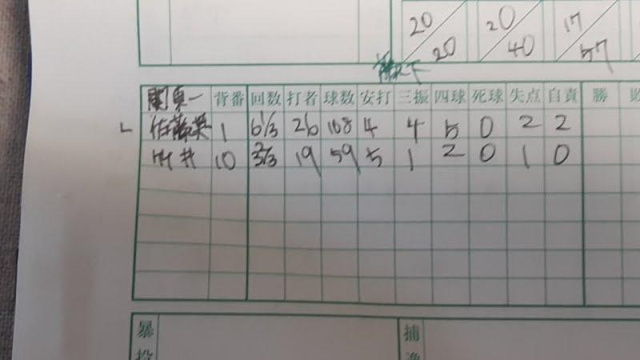 20 20 20 40 17 57
関東一 背番 回数 打者 球数 安打 三振 四球 死球 失点 自責 勝
佐藤英 1 6 1/3 26 108 4 4 5 0 2 2
竹井 10 3 2/3 19 59 5 1 2 0 1 0
暴 捕